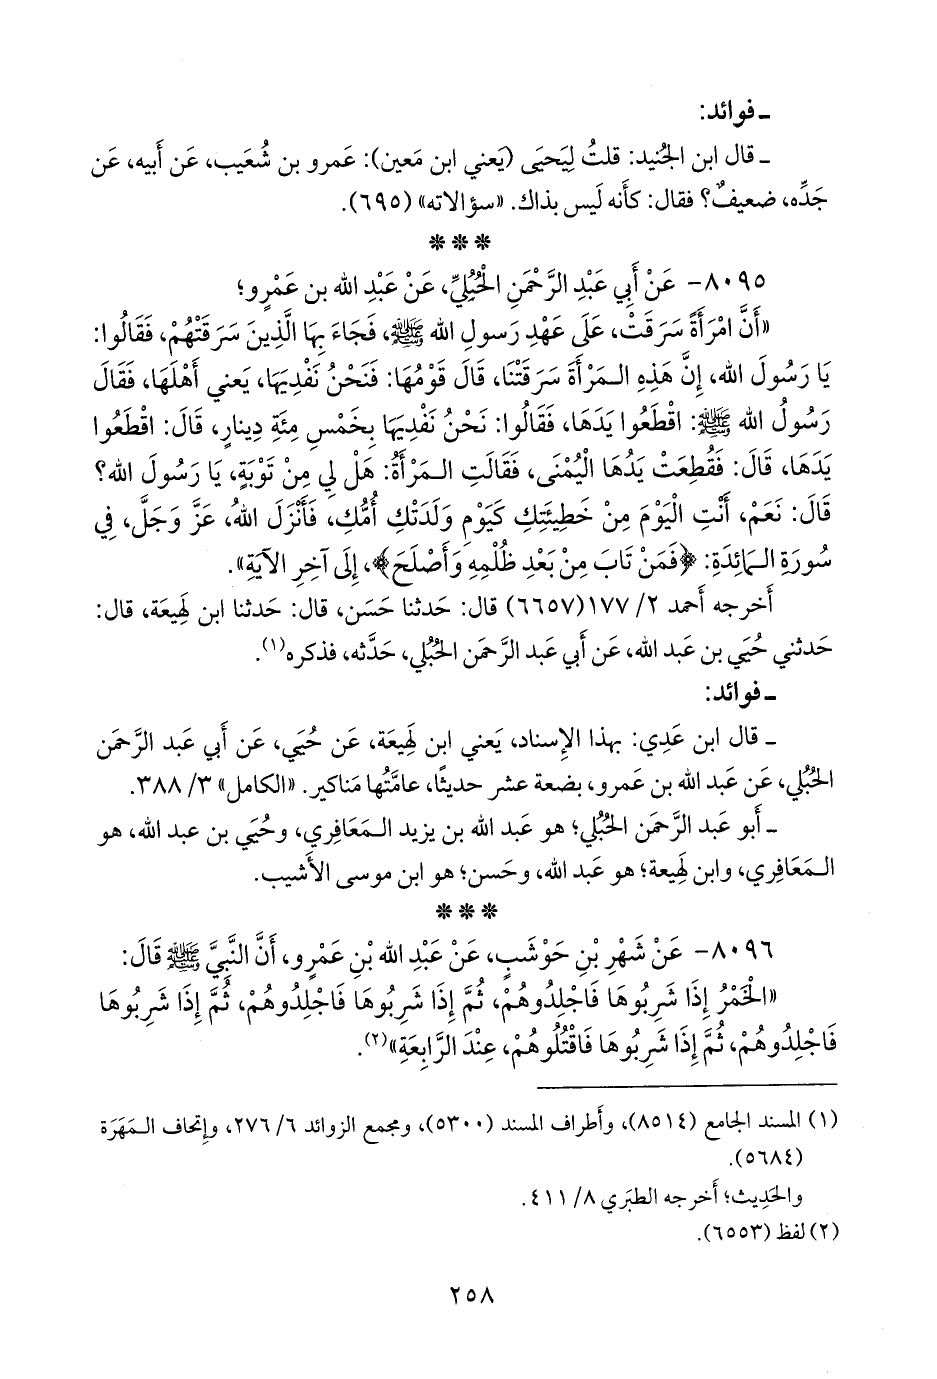 ـ فوائد:
ـ قال ابن الجُنيد: قلتُ لِيَحيَى (يَعني ابن مَعين): عَمرو بن شُعَيب، عَن أَبيه، عَن
جَدِّه، ضعيفٌ؟ فقال: كأَنه لَيس بذاك. «سؤالاته» (٦٩٥).
* * *
٨٠٩٥- عَنْ أَبِي عَبْدِ الرَّحْمَنِ الْحُبُلِيِّ، عَنْ عَبْدِ الله بن عَمْرٍو؛
«أَنَّ امْرَأَةً سَرَقَتْ، عَلَى عَهْدِ رَسولِ الله ﷺ، فَجَاءَ بِهَا الَّذِينَ سَرَقَتْهُمْ، فَقَالُوا:
يَا رَسُولَ الله، إِنَّ هَذِهِ الـمَرْأَةَ سَرَقَتْنَا، قَالَ قَوْمُهَا: فَنَحْنُ نَفْدِيهَا، يَعني أَهْلَهَا، فَقَالَ
رَسُولُ الله ﷺ: اقْطَعُوا يَدَهَا، فَقَالُوا: نَحْنُ نَفْدِيهَا بِخَمْسِ مِئَةِ دِينَارٍ، قَالَ: اقْطَعُوا
يَدَهَا، قَالَ: فَقُطِعَتْ يَدُهَا الْيُمْنَى، فَقَالَتِ الـمَرْأَةُ: هَلْ لِي مِنْ تَوْبَةٍ، يَا رَسُولَ الله؟
قَالَ: نَعَمْ، أَنْتِ الْيَوْمَ مِنْ خَطِيئَتِكِ كَيَوْمِ وَلَدَتْكِ أُمُّكِ، فَأَنْزَلَ اللهُ، عَزَّ وَجَلَّ، فِي
سُورَةِ الـمَائِدَةِ: ﴿فَمَنْ تَابَ مِنْ بَعْدِ ظُلْمِهِ وَأَصْلَحَ﴾، إِلَى آخِرِ الآيَةِ».
أَخرجه أَحمد ٢/ ١٧٧ (٦٦٥٧) قال: حَدثنا حَسَن، قال: حَدثنا ابن لَهِيعَة، قال:
حَدثني حُيَي بن عَبد الله، عَن أَبي عَبد الرَّحمَن الحُبُلي، حَدَّثه، فذكره(١).
ـ فوائد:
ـ قال ابن عَدِي: بهذا الإِسناد، يَعني ابن لَهِيعَة، عَن حُيَي، عَن أَبي عَبد الرَّحمَن
الحُبُلي، عَن عَبد الله بن عَمرو، بضعة عشر حديثًا، عامَّتُها مَناكير. «الكامل» ٣/ ٣٨٨.
ـ أَبو عَبد الرَّحمَن الحُبُلي؛ هو عَبد الله بن يزيد الـمَعَافِري، وحُيَي بن عبد الله، هو
الـمَعَافِري، وابن لَهِيعة؛ هو عَبد الله، وحَسن؛ هو ابن موسى الأَشيب.
* * *
٨٠٩٦- عَنْ شَهْرِ بْنِ حَوْشَبٍ، عَنْ عَبْدِ الله بْنِ عَمْرٍو، أَنَّ النَّبِيَّ ﷺ قَالَ:
«الْخَمْرُ إِذَا شَرِبُوهَا فَاجْلِدُوهُمْ، ثُمَّ إِذَا شَرِبُوهَا فَاجْلِدُوهُمْ، ثُمَّ إِذَا شَرِبُوهَا
فَاجْلِدُوهُمْ، ثُمَّ إِذَا شَرِبُوهَا فَاقْتُلُوهُمْ، عِنْدَ الرَّابِعَةِ»(٢).
(١) المسند الجامع (٨٥١٤)، وأَطراف المسند (٥٣٠٠)، ومجمع الزوائد ٦/ ٢٧٦، وإتحاف الـمَهَرَة
(٥٦٨٤).
والحَدِيث؛ أَخرجه الطبَري ٨/ ٤١١.
(٢) لفظ (٦٥٥٣).
٢٥٨